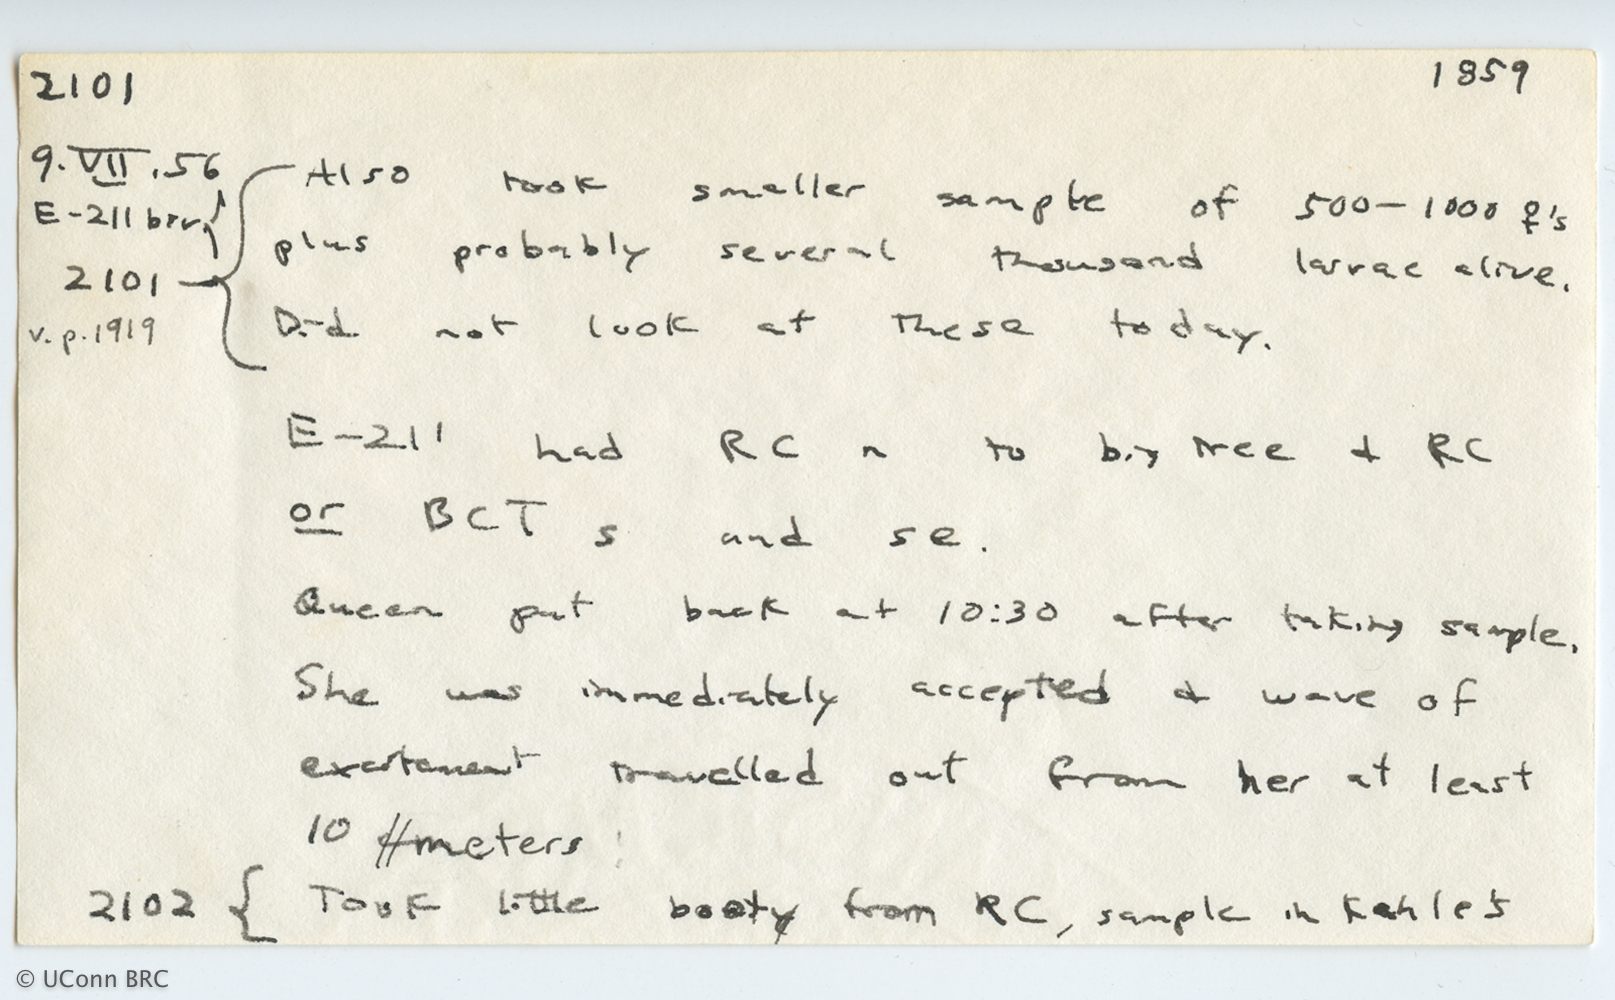 2101 1859
9.VII.56
E-211 brv.
2101
v.p.1919
Also took smaller sample of 500-1000 ♀'s
plus probably several thousand larvae alive.
Did not look at these today.
E-211 had RC n to big tree & RC
or BCT s and se.
Queen put back at 10:30 after taking sample.
She was immediately accepted & wave of
excitement travelled out from her at least
10 meters!
2102 { Took little booty from RC, sample in Kahle's
© UConn BRC